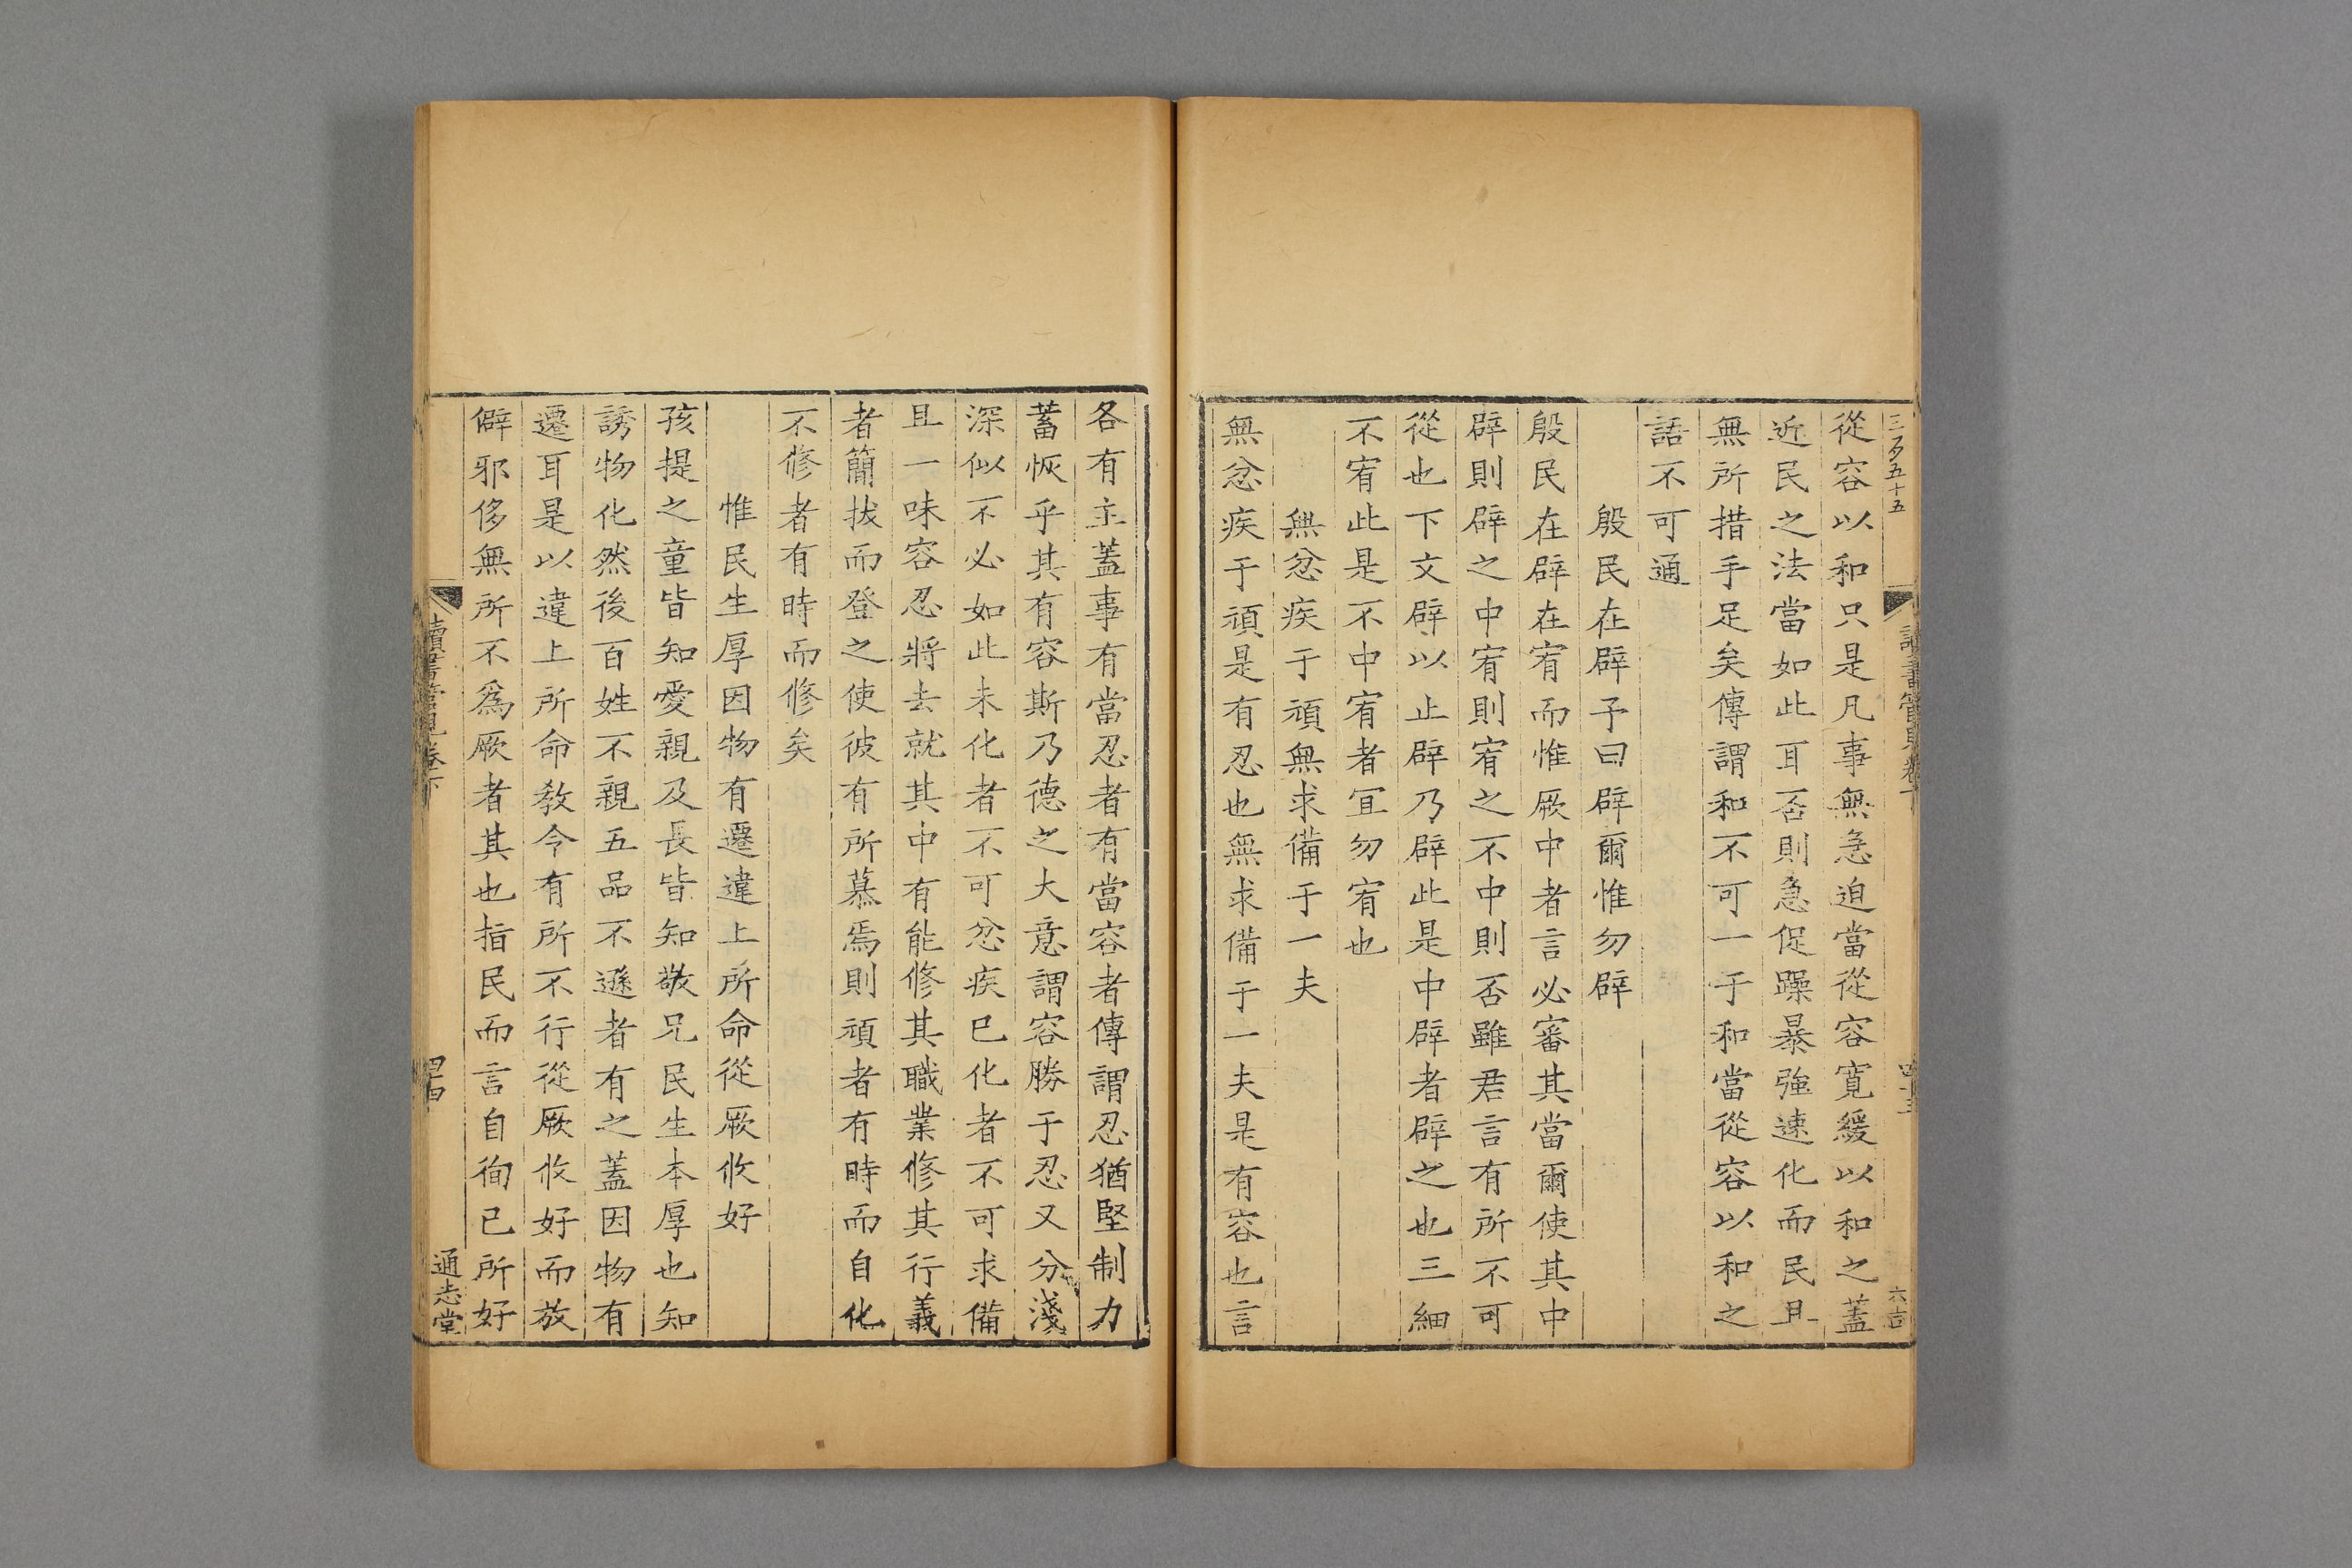 三百五十五
從容以和只是凡事無急迫當從容寬緩以和之蓋
近民之法當如此耳否則急促躁暴強速化而民且
無所措手足矣傳謂和不可一于和當從容以和之
語不可通
殷民在辟予曰辟爾惟勿辟
殷民在辟在宥而惟厥中者言必審其當爾使其中
辟則辟之中宥則宥之不中則否雖君言有所不可
從也下文辟以止辟乃辟此是中辟者辟之也三細
不宥此是不中宥者宜勿宥也
無忿疾于頑無求備于一夫
無忿疾于頑是有忍也無求備于一夫是有容也言
各有主蓋事有當忍者有當容者傳謂忍猶堅制力
蓄恢乎其有容斯乃德之大意謂容勝于忍又分淺
深似不必如此未化者不可忿疾已化者不可求備
且一味容忍將去就其中有能修其職業修其行義
者簡拔而登之使彼有所慕焉則頑者有時而自化
不修者有時而修矣
惟民生厚因物有遷違上所命從厥攸好
孩提之童皆知愛親及長皆知敬兄民生本厚也知
誘物化然後百姓不親五品不遜者有之蓋因物有
遷耳是以違上所命教今有所不行從厥攸好而放
僻邪侈無所不為厥者其也指民而言自徇己所好
讀書管見卷下
四十四
通志堂